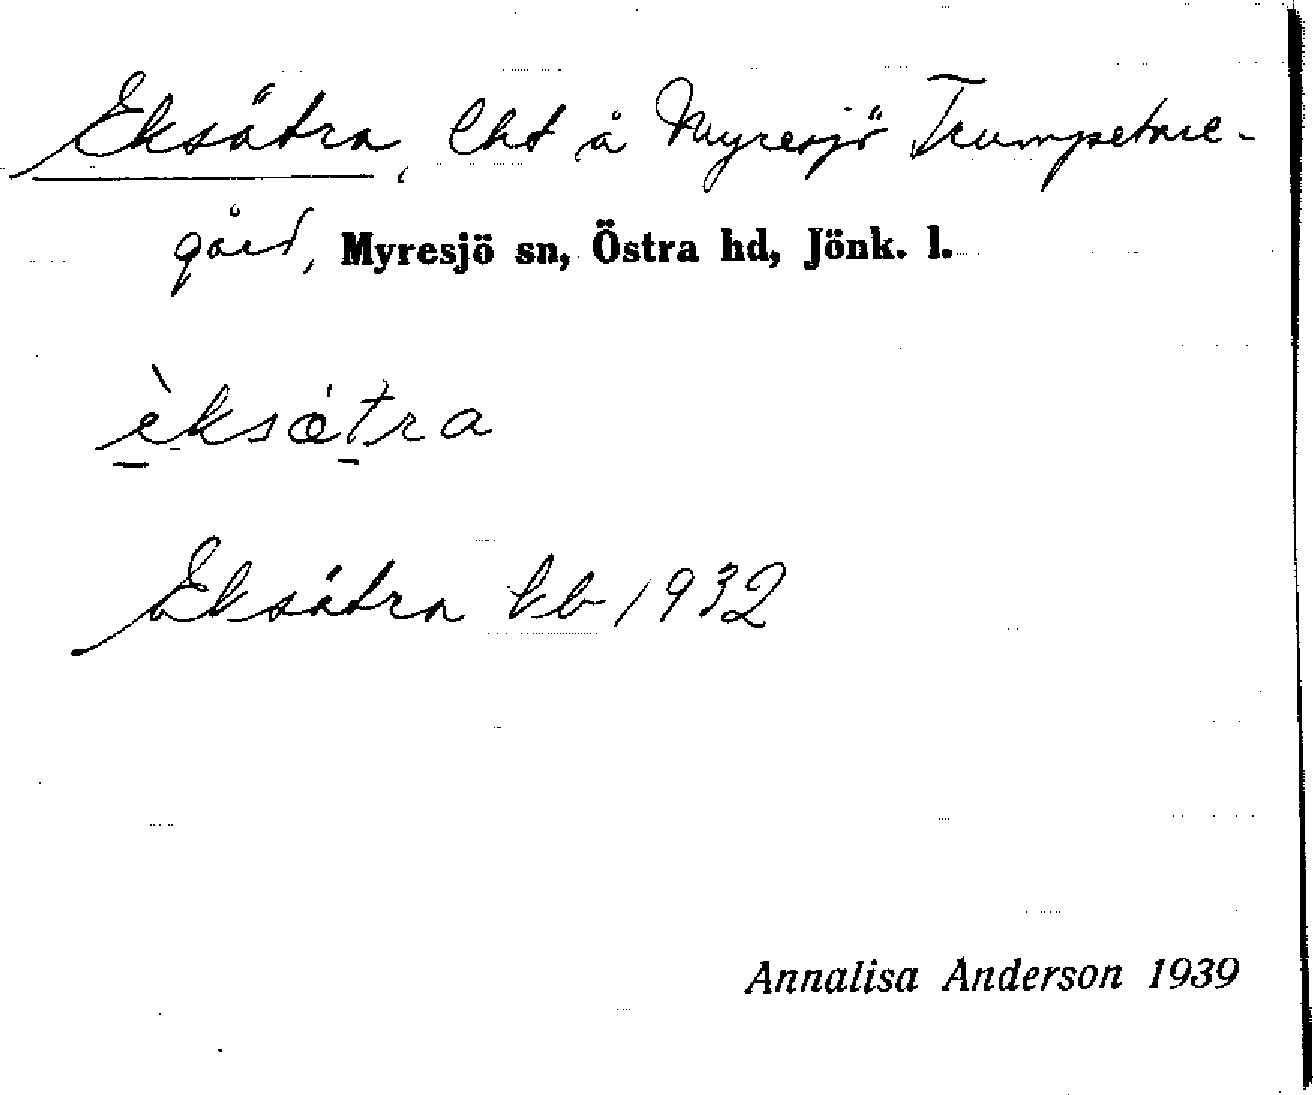 Eksätra, lht å Myresjö Trumpetare-
gård, Myresjö sn, Östra hd, Jönk. l.
èksǽtra
Eksätra kb 1932
Annalisa Anderson 1939